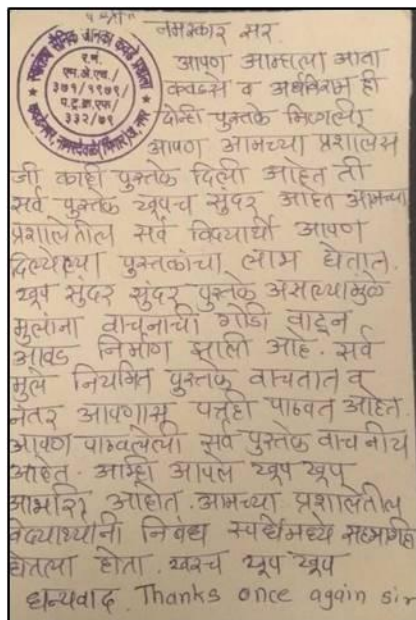 ॥ श्री ॥
नमस्कार सर.
आपण आम्हाला आता
कवडसे व अर्धविराम ही
दोन्ही पुस्तके मिळाली.
आपण आमच्या प्रशालेस
जी काही पुस्तके दिली आहेत ती
सर्व पुस्तके खूपच सुंदर आहेत आमच्या
प्रशालेतील सर्व विद्यार्थी आपण
दिलेल्या पुस्तकांचा लाभ घेतात.
खूप सुंदर सुंदर पुस्तके असल्यामुळे
मुलांना वाचनाची गोडी वाढून
आवड निर्माण झाली आहे. सर्व
मुले नियमित पुस्तके वाचतात व
नंतर आपणास पत्रही पाठवत आहेत
आपण पाठवलेली सर्व पुस्तके वाचनीय
आहेत. आम्ही आपले खूप खूप
आभारी आहोत. आमच्या प्रशालेतील
विद्यार्थ्यांनी निबंध स्पर्धेमध्ये सहभागही
घेतला होता. खरच खूप खूप
धन्यवाद. Thanks once again sir
र.नं.
एम.ए.एच./
३७१/१९७९/
प.ट्र.क्र.एफ/
३३२/७९